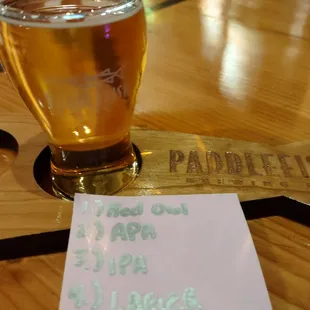 PADDLEFIS
1) Red Owl
2.) APA
3.) IPA
4.) LAGER